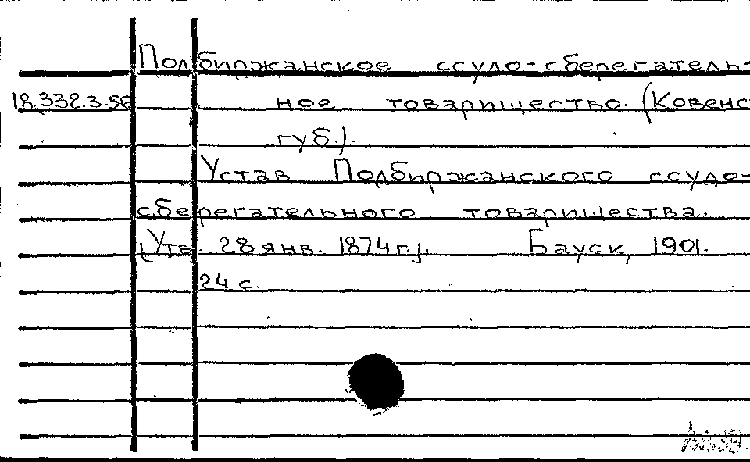 Подбиржанское ссудо-сберегатель-
18.332.3.56 ное товарищество. (Ковенс
губ.).
Устав Подбиржанского ссудо-
сберегательного товарищества.
[Утв. 28 янв. 1874 г.]. Бауск, 1901.
24 с.